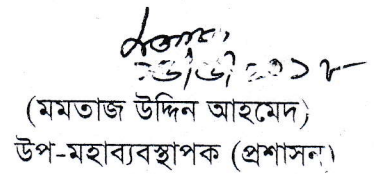 (মমতাজ উদ্দিন আহমেদ)
উপ-মহাব্যবস্থাপক (প্রশাসন)